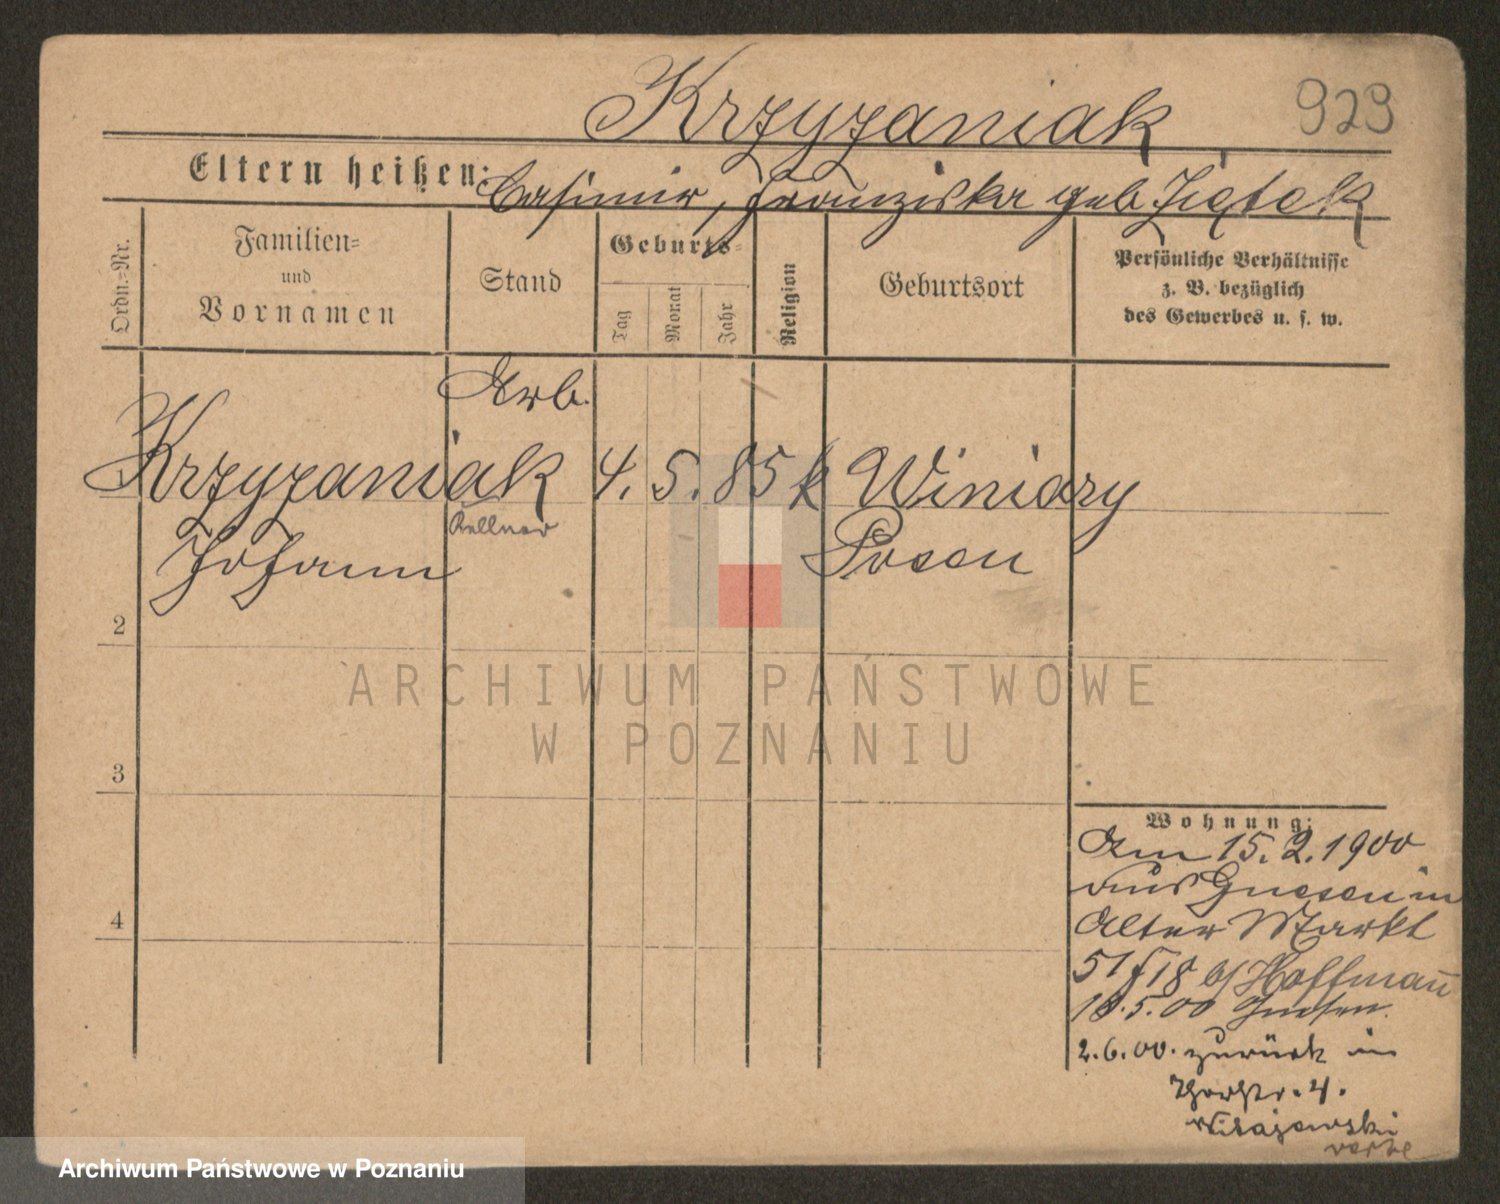 Krzyzaniak 929
Eltern heißen: Casimir, Franziska geb. Ziętek
Ordn.=Nr.
Familien=
und
Vornamen
Stand
Geburts=
Tag
Monat
Jahr
Religion
Geburtsort
Persönliche Verhältnisse
z. B. bezüglich
des Gewerbes u. s. w.
Arb.
Krzyzaniak 4. 5. 85 k Winiary
Kellner
Johann Posen
2
3
4
ARCHIWUM PAŃSTWOWE
W POZNANIU
Wohnung:
Am 15. 2. 1900
aus Gnesen in
Alter Markt
51 f 18 b/ Hoffmann
18.5.00 Gnesen.
2.6.00. zurück in
4.
Archiwum Państwowe w Poznaniu